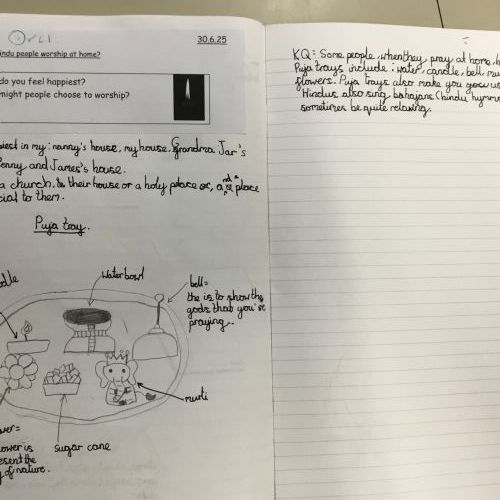 30.6.25
indu people worship at home?
do you feel happiest?
might people choose to worship?
iest in my: nanny's house, my house, Grandma Jar's
enny and James's house.
a church, to their house or a holy place or, and a place
cial to them.
Puja tray.
dle
water bowl
bell=
the is to show the
gods that you're
praying.
murti
sugar cane
wer=
lower is
esent the
y of nature.
KQ= Some people, when they pray at home, h
Puja trays include: water, candle, bell, mu
flowers. Puja trays also make you grow us
Hindus also sing bahajans (hindu hymns
sometimes be quite relaxing.